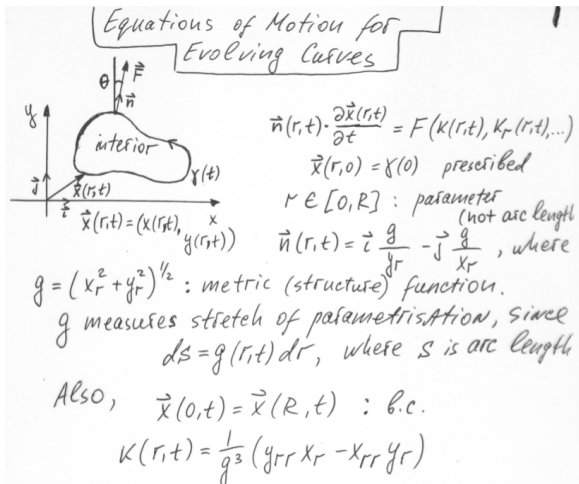 Equations of Motion for
Evolving Curves
1
θ F⃗
n⃗
y
interior
j⃗ x⃗(r,t) γ(t)
i⃗ x
x⃗(r,t)=(x(r,t),
y(r,t))
n⃗(r,t)·∂x⃗(r,t)/∂t = F(K(r,t), K_r(r,t),...)
x⃗(r,0) = γ(0) prescribed
r∈[0,R] : parameter
(not arc length
n⃗(r,t) = i⃗ g/y_r - j⃗ g/x_r , where
g = (x_r² + y_r²)^{1/2} : metric (structure) function.
g measures stretch of parametrisation, since
ds = g(r,t) dr, where s is arc length
Also, x⃗(0,t) = x⃗(R,t) : b.c.
K(r,t) = 1/g³ (y_rr x_r - x_rr y_r)